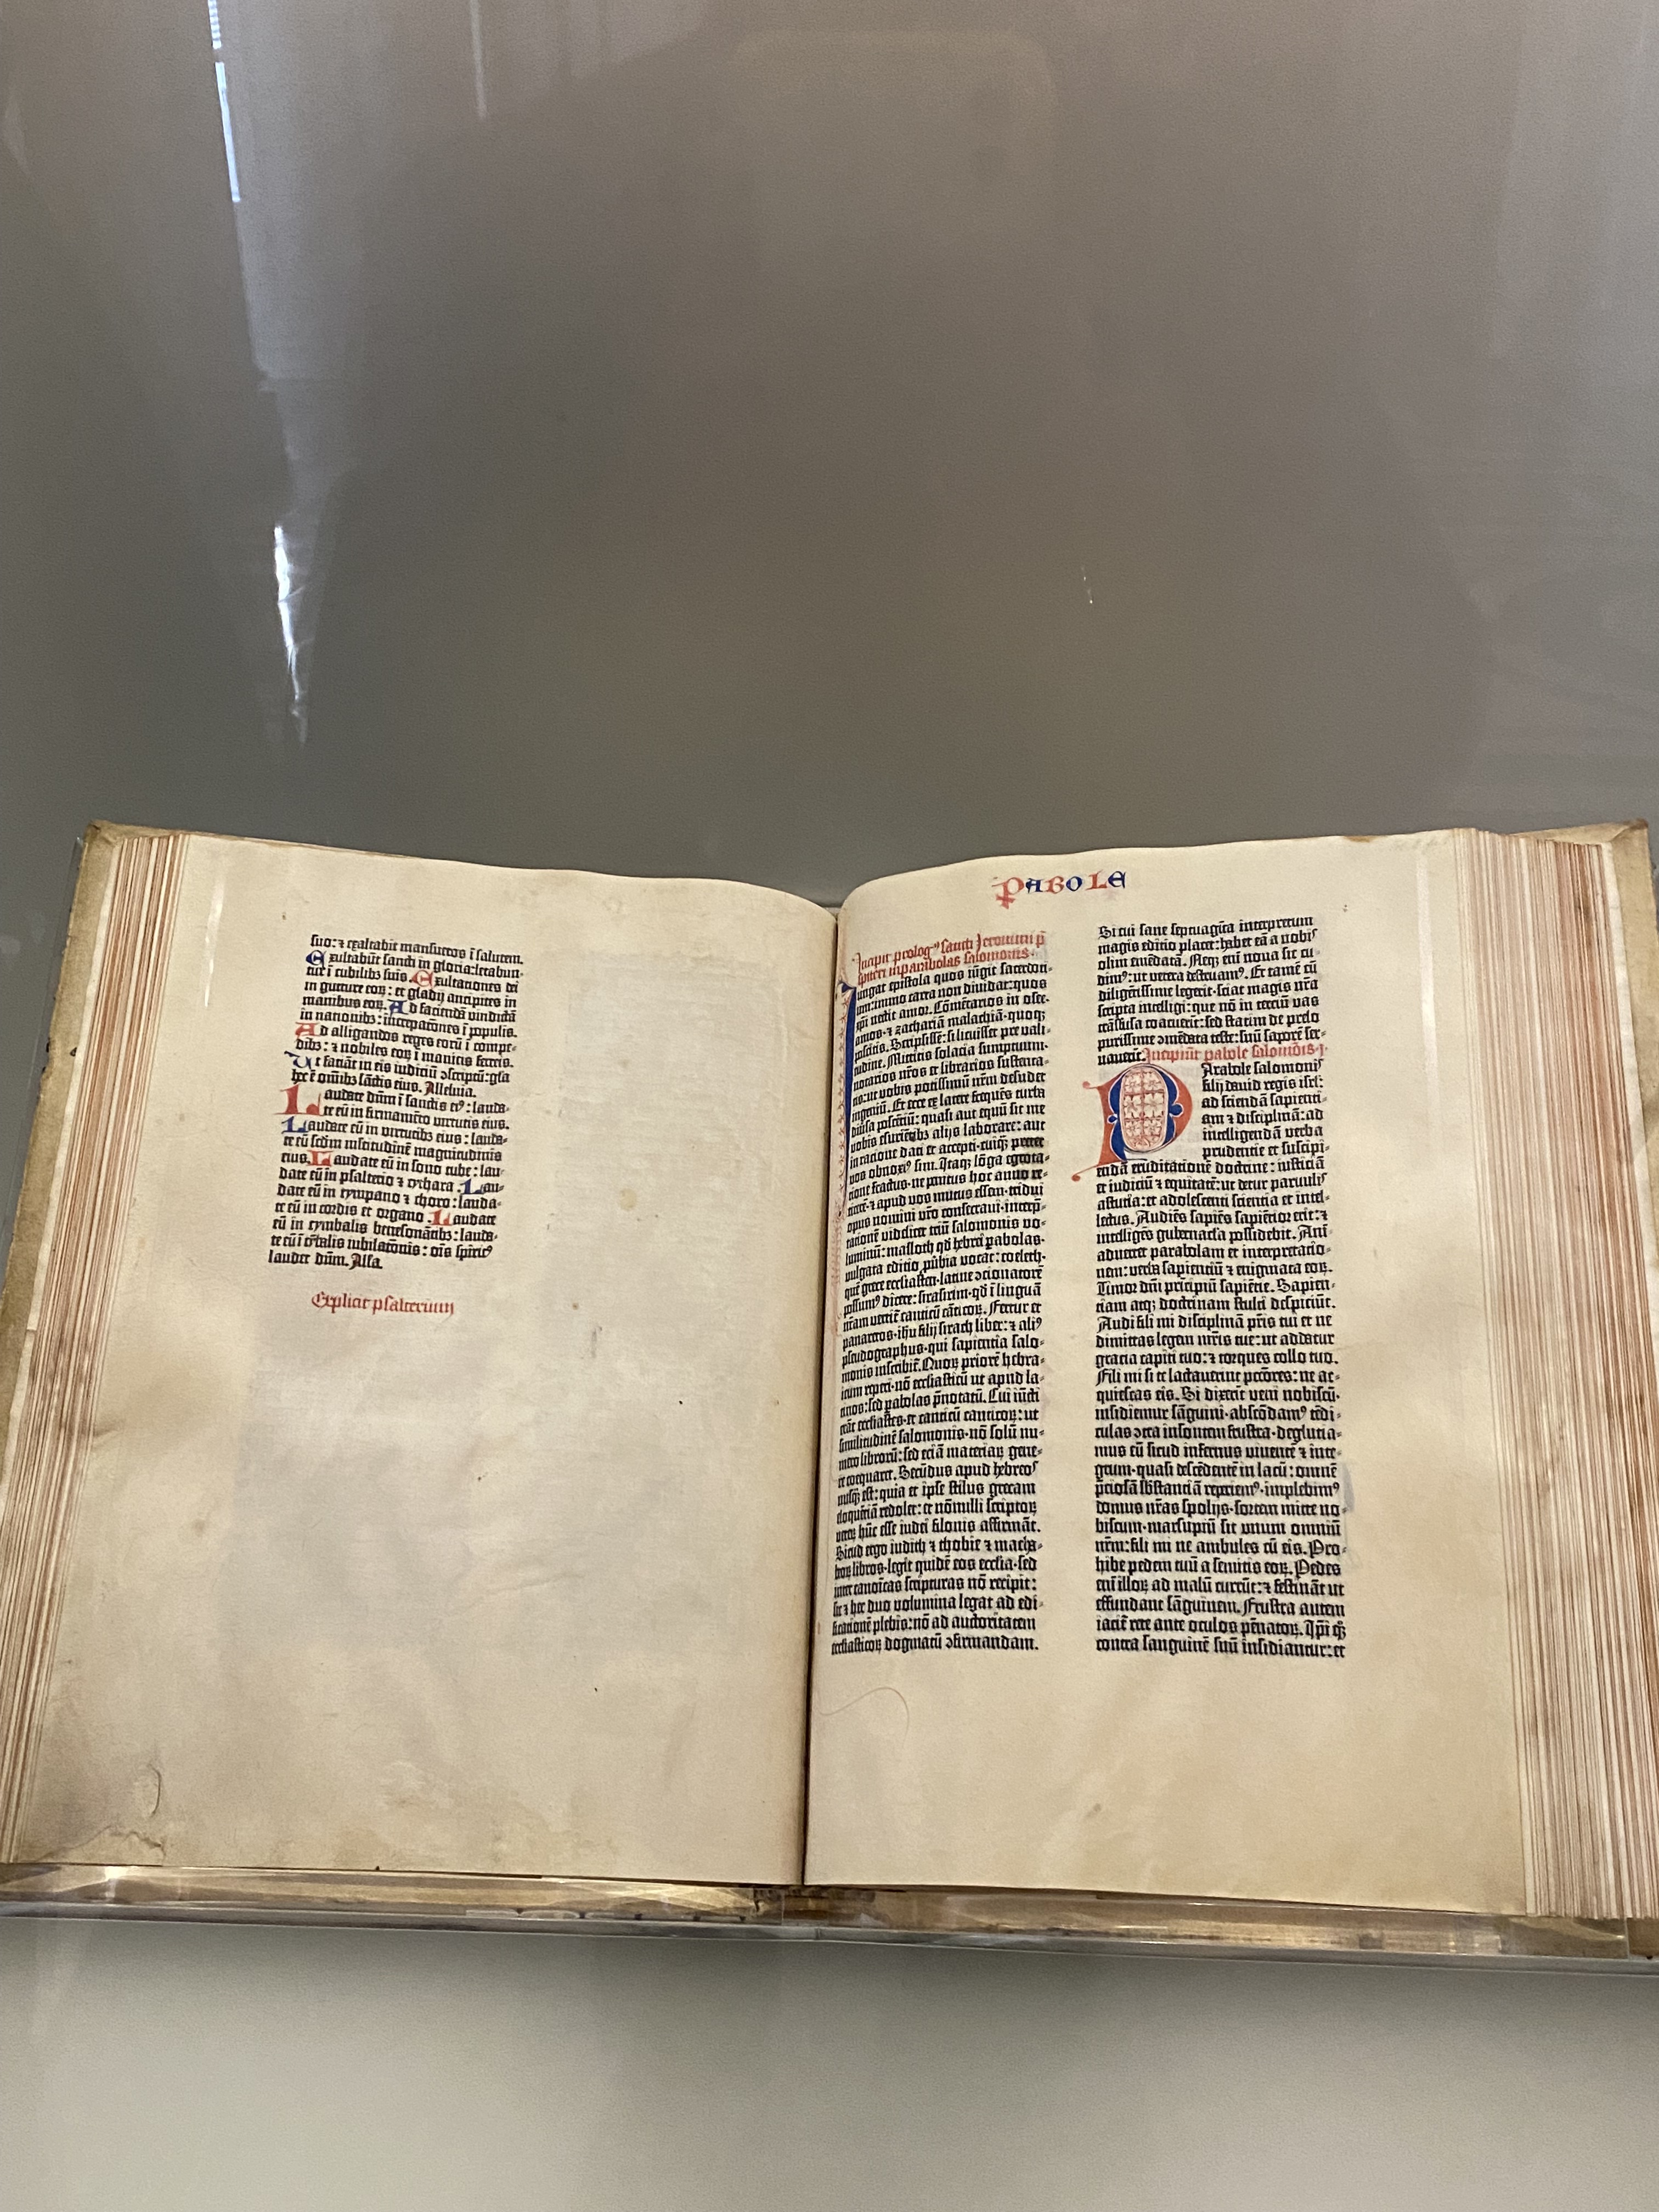 suo: ⁊ exaltabit mansuetos ī salutem.
Exultabūt sancti in gloria: letabun-
tur ī cubilibꝫ suis. Exultationes dei
in gutture eoꝝ: et gladij ancipites in
manibus eoꝝ. Ad faciendā vindictā
in nationibꝫ: increpatōnes ī populis.
Ad alligandos reges eorū ī compe-
dibꝫ: ⁊ nobiles eoꝝ ī manicis ferreis.
Ut faciāt in eis iudiciū ↄscriptū: gl̄a
hec ē om̄ibꝫ sāctis eius. Alleluia.
Laudate dūm ī sanctis eiꝰ: lauda-
te eū in firmamēto virtutis eius.
Laudate eū in virtutibꝫ eius: lauda-
te eū scd̄m multitudinē magnitudinis
eius. Laudate eū in sono tube: lau-
date eū in psalterio ⁊ cythara. Lau-
date eū in tympano ⁊ choro: lauda-
te eū in cordis et organo. Laudate
eū in cymbalis benesonātibꝫ: lauda-
te eū ī cȳbalis iubilatōnis: oīs spiritꝰ
laudet dūm. Alla.
Explicit psalterium
PABOLE
Incipit prologꝰ sancti Jeronimi p̄
sbiteri in parabolas salomonis.
Iungat epistola quos iūgit sacerdoti-
um: immo carta non diuidat: quos
xp̄i nectit amor. Cōmētarios in osee.
amos. ⁊ zachariā malachiā. quoqꝫ
poscitis. Scripsissē: si licuisset pre vali-
tudine. Mittitis solacia sumptuum.
notarios nr̄os et librarios sustenta-
tis: ut vobis potissimū nr̄m desudet
ingeniū. Et ecce ex latere frequēs turba
diūsa poscētiū: quasi aut equū sit me
vobis esuriētibꝫ alijs laborare: aut
in ratione dati et accepti. cuiqꝫ preter
vos obnoxiꝰ sim. Itaqꝫ lōga egrota-
tione fractus. ne penitus hoc anno re-
ticerē. ⁊ apud vos mutus essem. tridui
opus nomini vr̄o consecraui. interp̄-
tationē videlicet triū salomonis vo-
luminū: masloth qd̄ hebrei ꝑabolas.
vulgata editio ꝓūbia vocat: coeleth.
quē grece ecclesiasten. latine ↄcionatorē
possumꝰ dicere: sirasirim. qd̄ ī linguā
nr̄am vertit̄ canticū cāticoꝝ. Fertur et
panaretos. ih̄u filij sirach liber: ⁊ aliꝰ
pseudographus. qui sapientia salo-
monis inscribit̄. Quoꝝ priorē hebra-
icum reperi. nō ecclesiasticū ut apud la-
tinos: sed ꝑabolas p̄notatū. Cui iūcti
erāt ecclesiastes. et canticū canticoꝝ: ut
similitudinē salomonis. nō solū nu-
mero librorū: sed eciā materiaꝝ gene-
re coequaret. Secūdus apud hebreos
nusqꝫ est: quia et ipse stilus grecam
eloquētiā redolet: et nōnulli scriptoꝝ
veteꝝ hūc esse iudei filonis affirmāt.
Sicud ergo iudith ⁊ thobie ⁊ macha-
beoꝝ libros. legit quidē eos ecclīa. sed
inter canoīcas scripturas nō recipit:
sic ⁊ hec duo volumina legat ad edi-
ficationē plebis: nō ad auctoritatem
ecclesiasticoꝝ dogmatū ↄfirmandam.
Si cui sane septuagīta interpretum
magis editio placet: habet eā a nobis
olim emēdatā. Neqꝫ enī noua sic cu-
dimꝰ: ut vetera destruamꝰ. Et tamē cū
diligētissime legerit. sciat magis nr̄a
scripta intelligi: que nō in terciū vas
trāsfusa coacuerīt: sed statim de prelo
purissime ↄmēdata teste: suū saporē ser-
uauerīt. Incipiūt ꝑabole salomōis.
Parabole salomonis
filij dauid regis isrl̄:
ad sciendā sapienti-
am ⁊ disciplinā: ad
intelligendā verba
prudentie et suscipi-
endā eruditationē doctrine: iusticiā
et iudiciū ⁊ equitatē: ut detur paruulis
astutia: et adolescenti scientia et intel-
lectus. Audiēs sapiēs sapiētior erit: ⁊
intelligēs gubernacl̄a possidebit. Ani-
aduertet parabolam et interpretatio-
nem: verba sapientiū ⁊ enigmata eoꝝ.
Timor dn̄i prīcipiū sapiētie. Sapien-
tiam atqꝫ doctrinam stulti despiciūt.
Audi fili mi disciplinā pr̄is tui et ne
dimittas legem mr̄is tue: ut addatur
gracia capiti tuo: ⁊ torques collo tuo.
Fili mi si te lactauerint pctōres: ne ac-
quiescas eis. Si dixerīt veni nobiscū.
insidiemur sāguini. abscōdamꝰ tēdi-
culas ↄtra insontem frustra. degluti a-
mus eū sicud infernus viuentē ⁊ inte-
grum. quasi descēdentē in lacū: omnē
p̄ciosā sb̄stanciā reperiemꝰ. implebimꝰ
domus nr̄as spolijs. sortem mitte no-
biscum. marsupiū sit unum omniū
nr̄m: fili mi ne ambules cū eis. Pro-
hibe pedem tuū a semitis eoꝝ. Pedes
enī illoꝝ ad malū currūt: ⁊ festināt ut
effundant sāguinem. Frustra autem
iacit̄ rete ante oculos pēnatoꝝ. Ip̄i qꝫ
contra sanguinē suū insidiantur: et